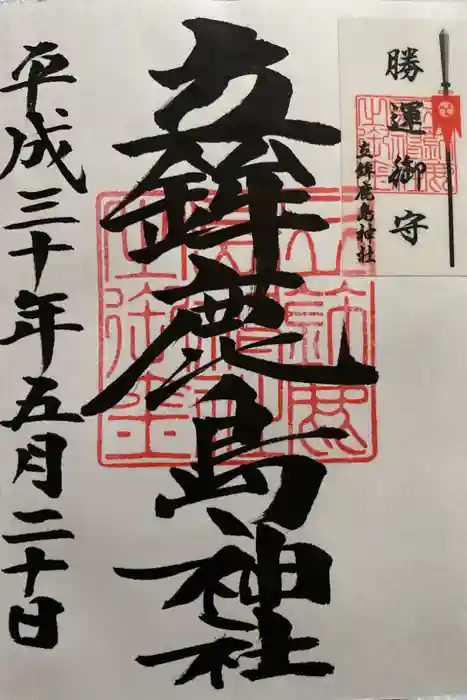 勝運御守
立鉾鹿島神社
立鉾鹿島神社
平成三十年五月二十日